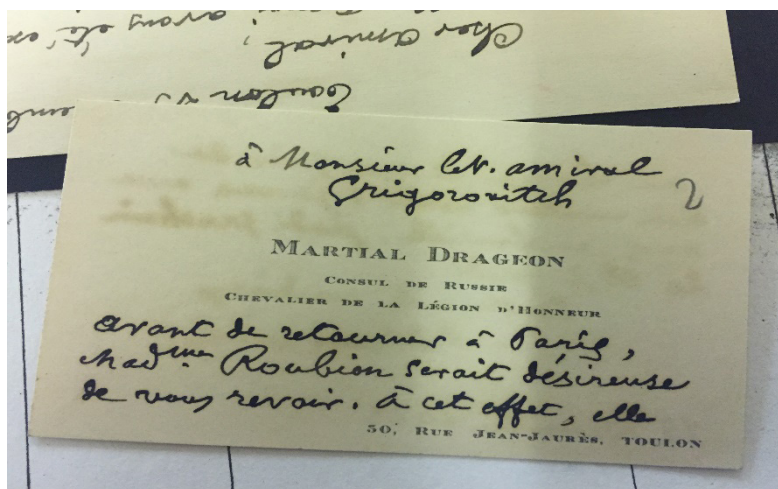 Cher amiral,
Toulon
à Monsieur le V. amiral
Grigorovitch
2
MARTIAL DRAGEON
CONSUL DE RUSSIE
CHEVALIER DE LA LÉGION D'HONNEUR
avant de retourner à Paris,
Madme Roubion serait désireuse
de vous revoir. À cet effet, elle
50, RUE JEAN-JAURÈS, TOULON